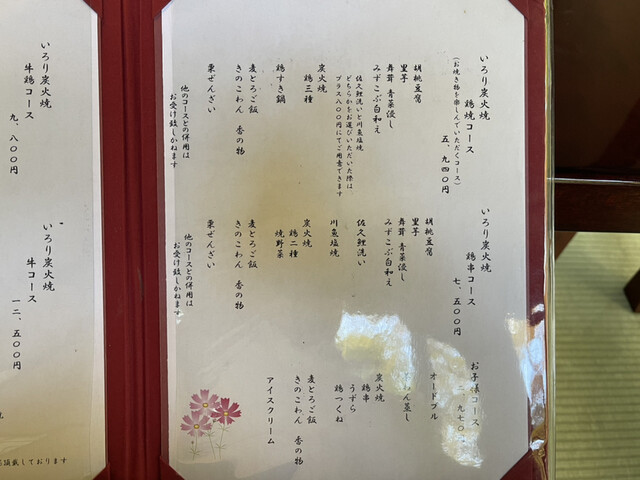 いろり炭火焼
鶏焼コース
(お焼き物を楽しんでいただくコース)
五、九四〇円
胡桃豆腐
里芋
舞茸 青菜浸し
みずこぶ白和え
佐久鯉洗いと川魚塩焼
どちらかをお選びいただいた際は
プラス八〇〇円にてご用意できます
炭火焼
鶏三種
鶏すき鍋
麦とろご飯
きのこわん 香の物
栗ぜんざい
他のコースとの併用は
お受け致しかねます
いろり炭火焼
鶏串コース
七、五〇〇円
胡桃豆腐
里芋
舞茸 青菜浸し
みずこぶ白和え
佐久鯉洗い
川魚塩焼
炭火焼
鶏二種
焼野菜
麦とろご飯
きのこわん 香の物
栗ぜんざい
他のコースとの併用は
お受け致しかねます
お子様コース
二、九七〇
オードブル
わん蒸し
炭火焼
鶏串
うずら
鶏つくね
麦とろご飯
きのこわん 香の物
アイスクリーム
いろり炭火焼
牛鶏コース
九、八〇〇円
いろり炭火焼
牛コース
一二、五〇〇円
頂戴しております